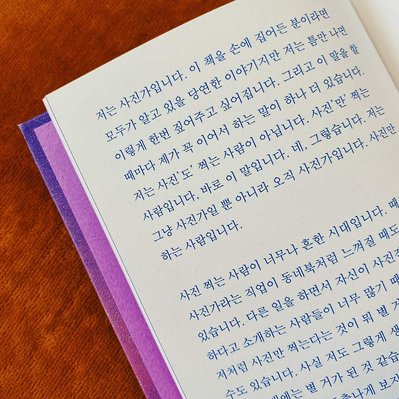 저는 사진가입니다. 이 책을 손에 집어든 분이라면
모두가 알고 있을 당연한 이야기지만 저는 틈만 나면
이렇게 한번 짚어주고 싶어집니다. 그리고 이 말을 할
때마다 제가 꼭 이어서 하는 말이 하나 더 있습니다.
저는 사진'도' 찍는 사람이 아닙니다. 사진'만' 찍는
사람입니다, 바로 이 말입니다. 네, 그렇습니다. 저는
그냥 사진가일 뿐 아니라 오직 사진가입니다. 사진만
하는 사람입니다.
사진 찍는 사람이 너무나 흔한 시대입니다. 때
사진가라는 직업이 동네북처럼 느껴질 때도
있습니다. 다른 일을 하면서 자신이 사진
하다고 소개하는 사람들이 너무 많기 때
저처럼 사진만 찍는다는 것이 뭐 별 거
수도 있습니다. 사실 저도 그렇게 생
에는 별 거가 된 것 같습
보자